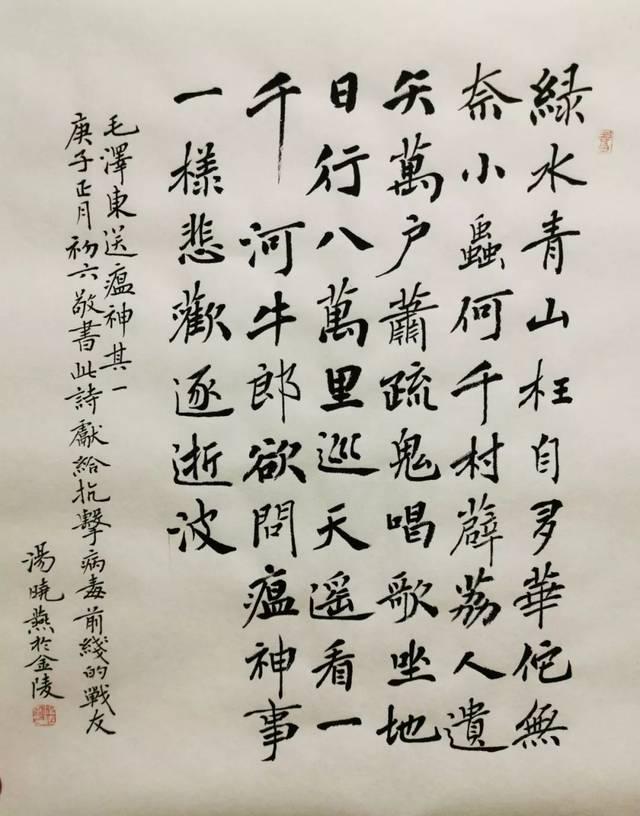 緑水青山枉自多華佗無
奈小蟲何千村薜荔人遺
矢萬户蕭疏鬼唱歌坐地
日行八萬里巡天遥看一
千河牛郎欲問瘟神事
一樣悲歡逐逝波
毛澤東送瘟神其一
庚子正月初六敬書此詩獻給抗擊病毒前綫的戰友
湯曉燕於金陵